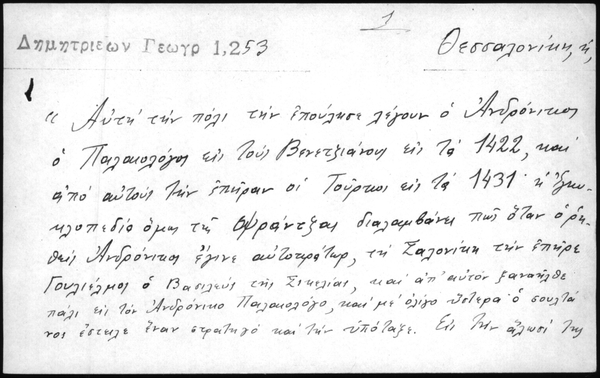 1
Δημητριεων Γεωγρ 1,253
Θεσσαλονίκη, ἡ,
« Αὐτὴ τὴν πόλι τὴν ἐπούλησε λέγουν ὁ Ἀνδρόνικος
ὁ Παλαιολόγος εἰς τοὺς Βενετζιάνους εἰς τὰ 1422, καὶ
ἀπὸ αὐτοὺς τὴν ἐπῆραν οἱ Τοῦρκοι εἰς τὰ 1431· ἡ Ἐγκυ-
κλοπεδία ὅμως τῆς Φράντζας διαλαμβάνει πῶς ὅταν ὁ ῥη-
θεὶς Ἀνδρόνικος ἔγινε αὐτοκράτωρ, τὴ Σαλονίκη τὴν ἐπῆρε
Γουλιέλμος ὁ Βασιλεὺς τῆς Σικελίας, καὶ ἀπ' αὐτὸν ξαναῆλθε
πάλι εἰς τὸν Ἀνδρόνικο Παλαιολόγο, καὶ μὲ ὀλίγο ὕστερα ὁ σουλτά
νος ἔστειλε ἕναν στρατηγὸ καὶ τὴν ὑπόταξε. Εἰς τὴν ἅλωσί της